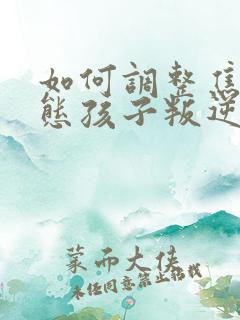 如何調整焦
態孩子叛逆
蒙面大侠
未经同意禁止搭载